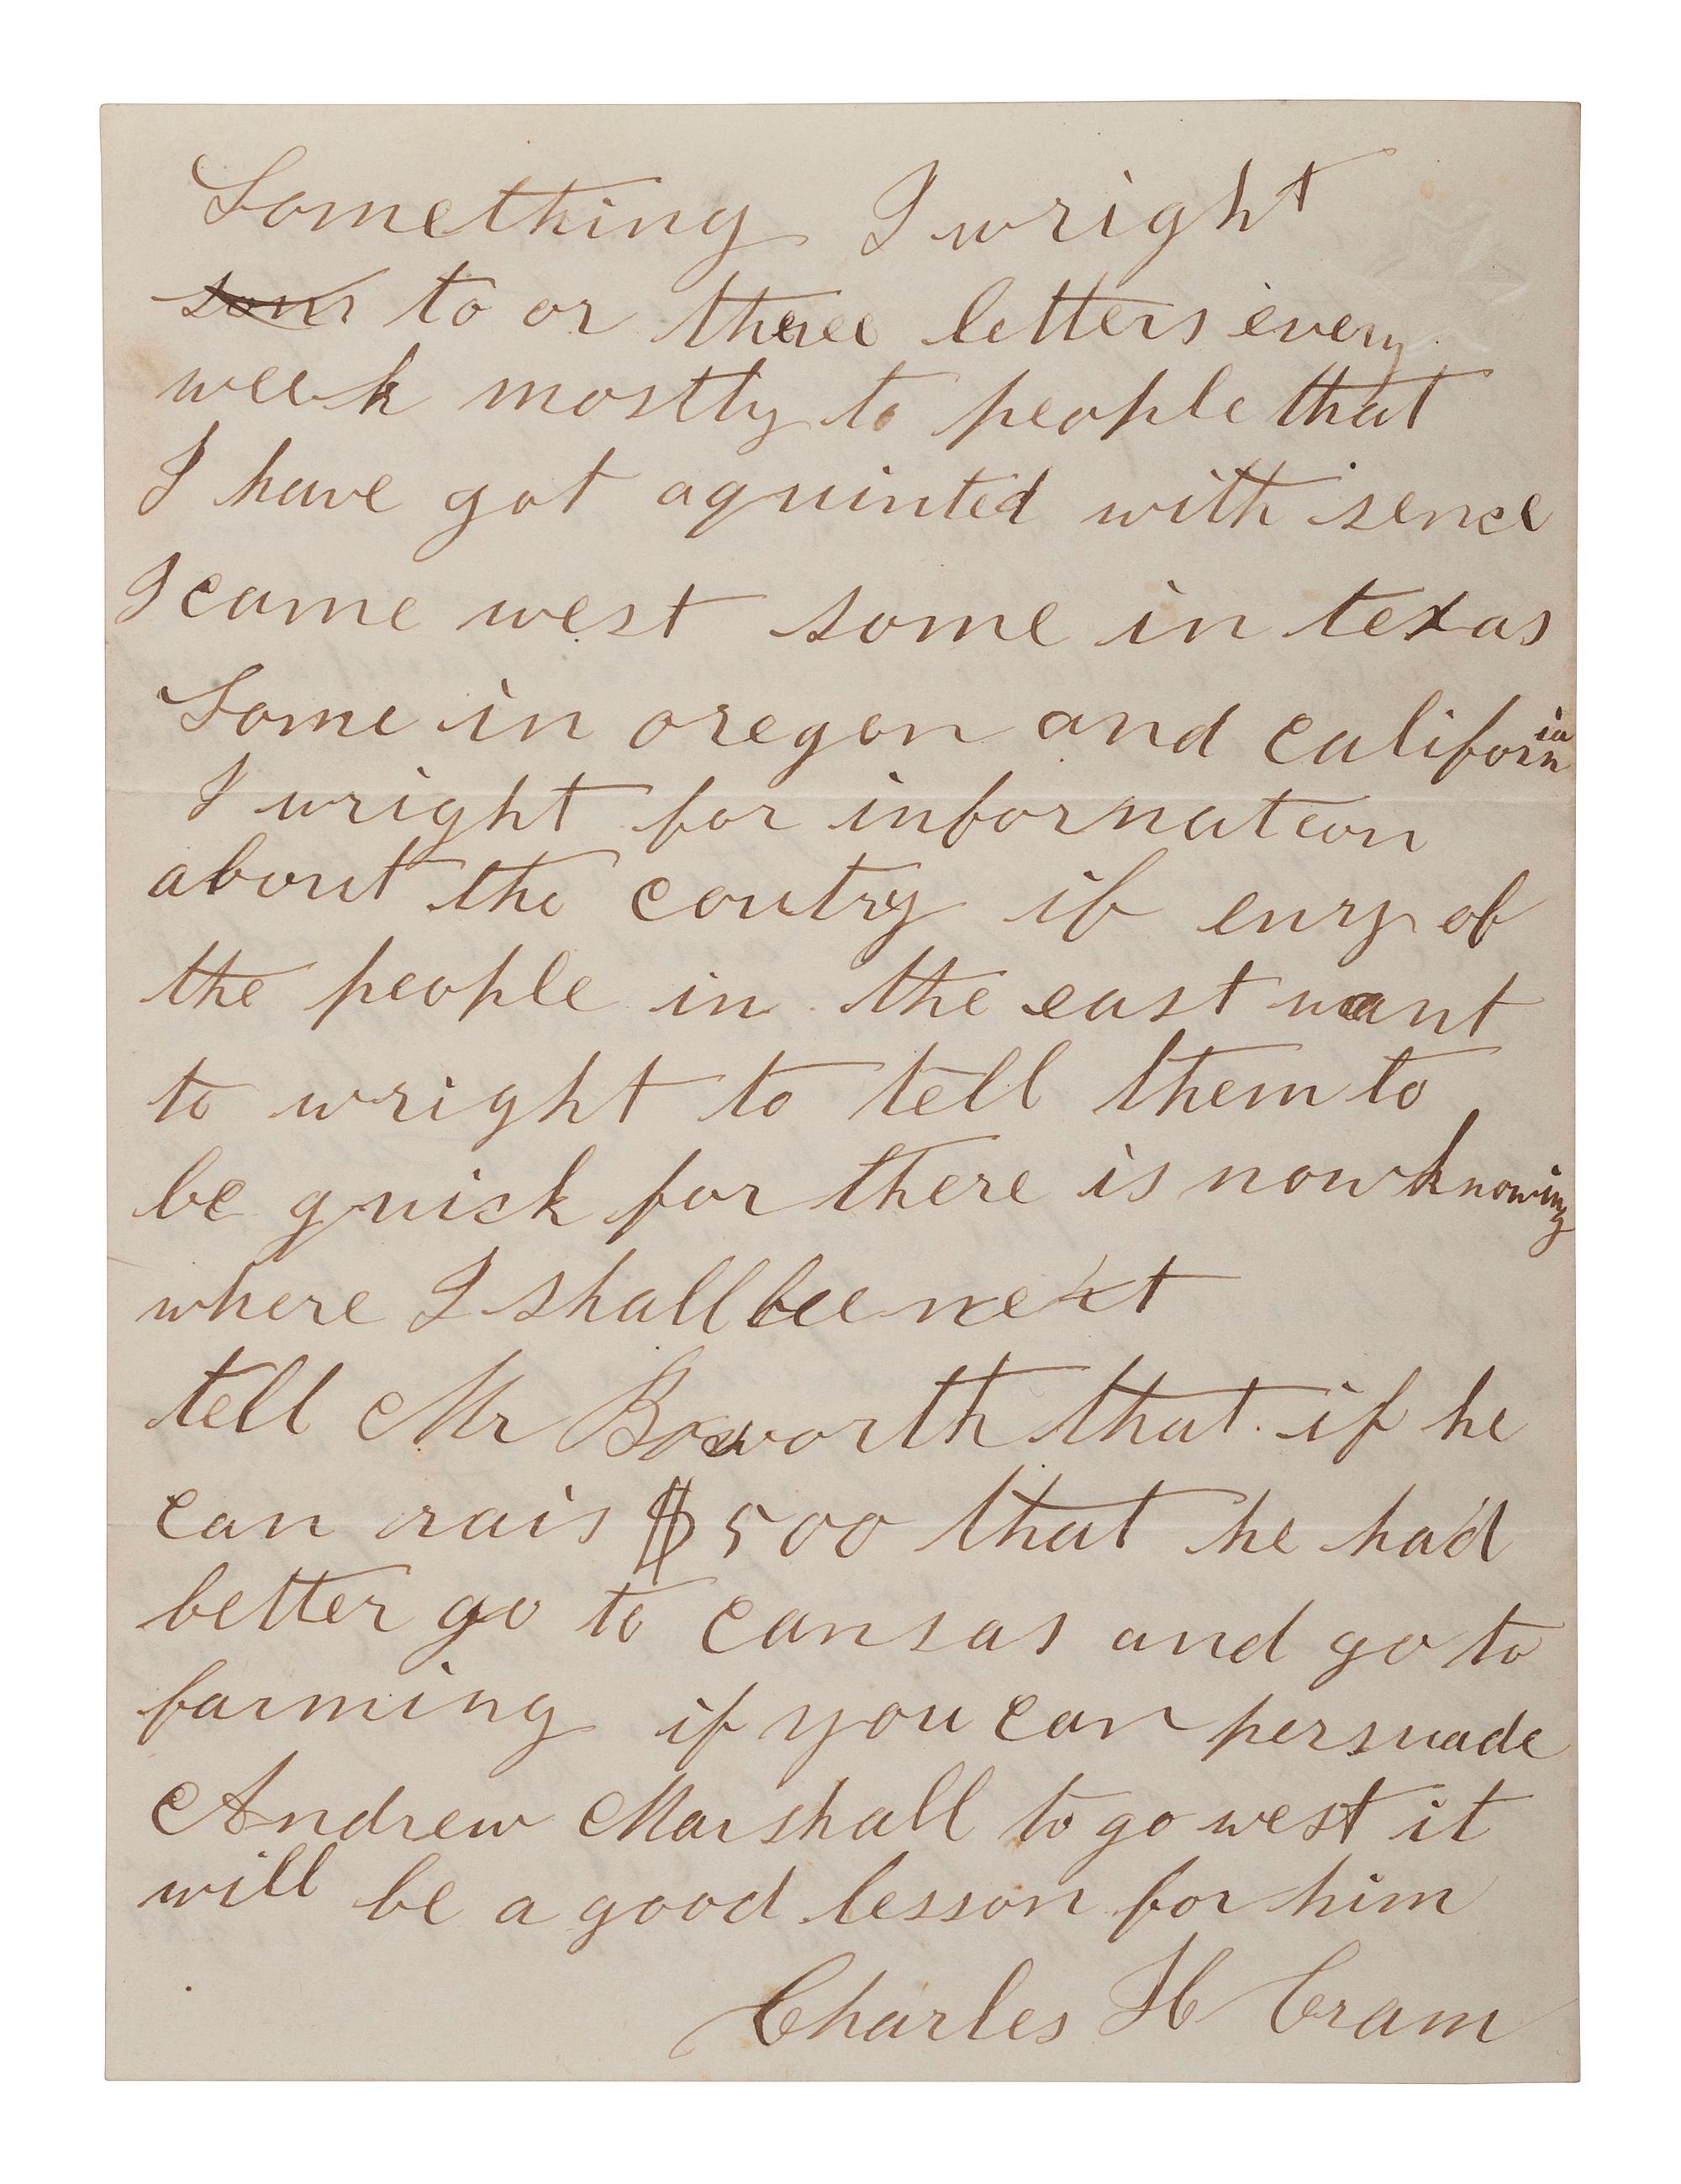 Something I wright
to or three letters every
week mostly to people that
I have got aquinted with sence
I came west some in texas
Some in oregon and california
I wright for infornation
about the coutry if eny of
the people in the east want
to wright to tell them to
be quick for there is now knowing
where I shall bee next
tell Mr that if he
can rais $500 that he had
better go to cansas and go to
farming if you can persuade
Andrew Marshall to go west it
will be a good lesson for him
Charles H Cram